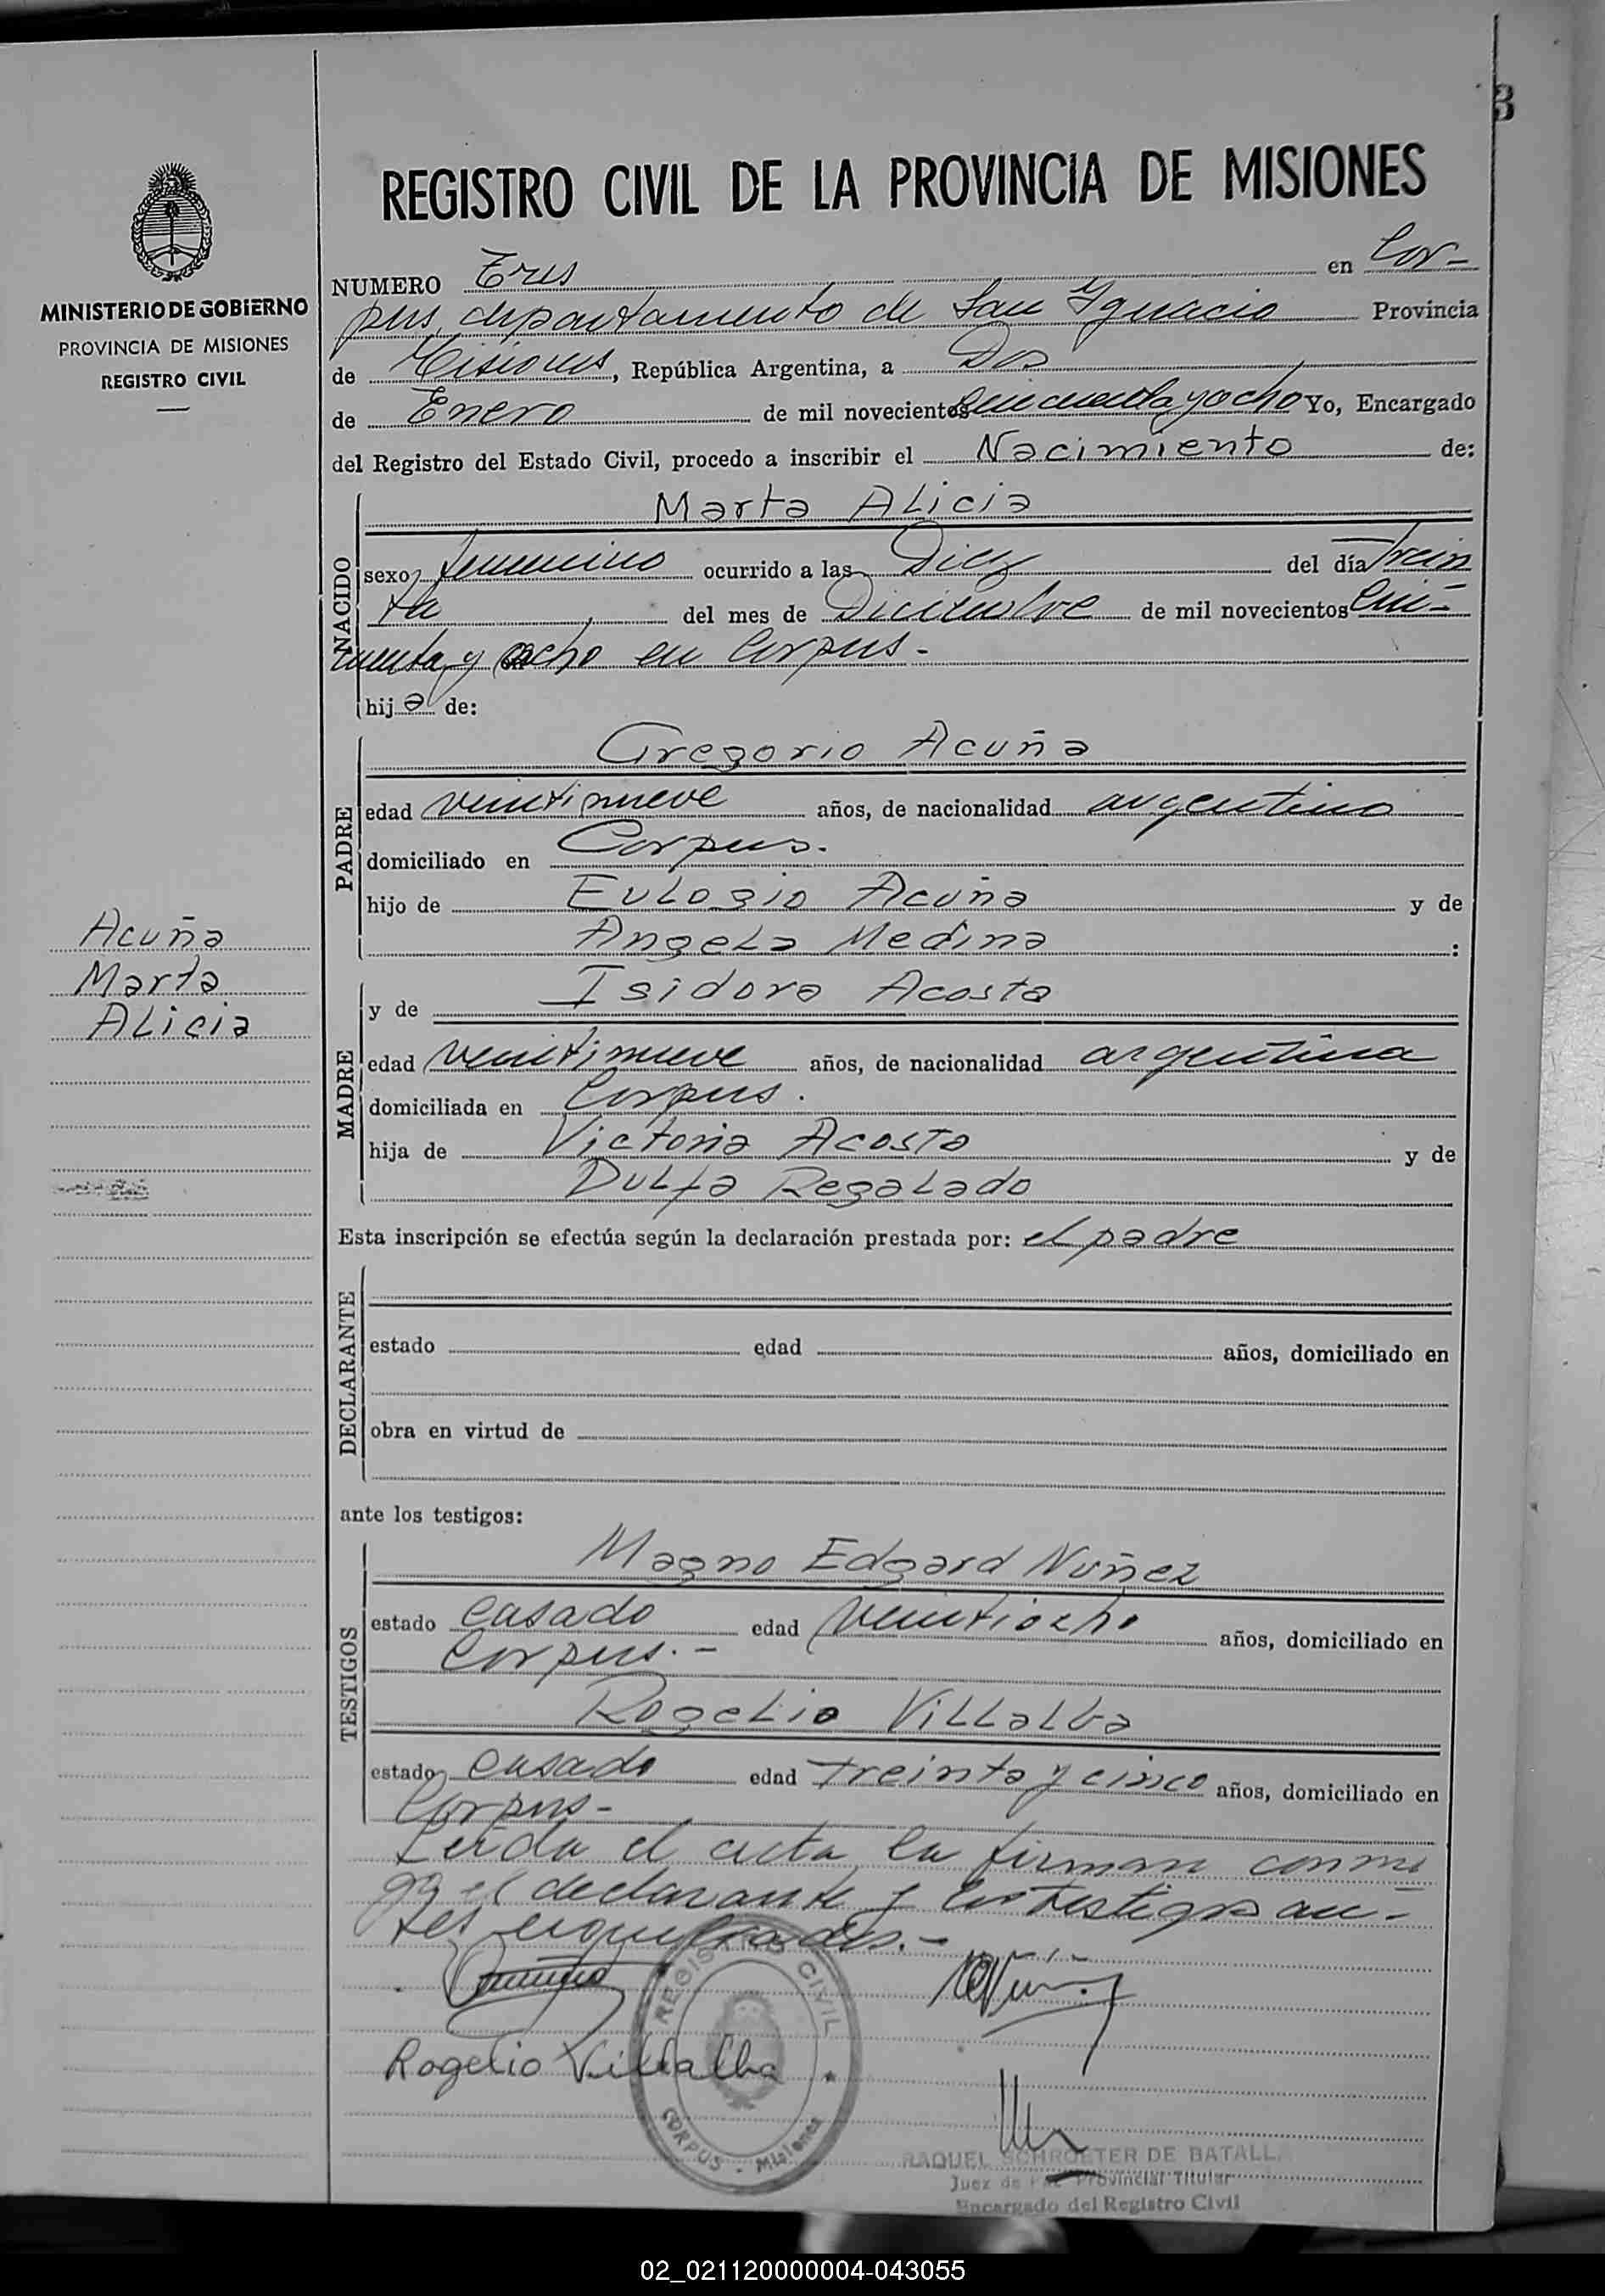 3
REGISTRO CIVIL DE LA PROVINCIA DE MISIONES
MINISTERIO DE GOBIERNO
PROVINCIA DE MISIONES
REGISTRO CIVIL
NUMERO Tres en Cor-
pus, departamento de San Ignacio Provincia
de Misiones, República Argentina, a Dos
de Enero de mil novecientos cincuenta y ocho Yo, Encargado
del Registro del Estado Civil, procedo a inscribir el Nacimiento de:
NACIDO
Marta Alicia
sexo femenino ocurrido a las Diez del día trein
ta del mes de Diciembre de mil novecientos cin-
cuenta y ocho en Corpus.-
hija de:
PADRE
Gregorio Acuña
edad veintinueve años, de nacionalidad argentino
domiciliado en Corpus.
hijo de Eulogio Acuña y de
Angela Medina :
Acuña
Marta
Alicia
MADRE
y de Isidora Acosta
edad veintinueve años, de nacionalidad argentina
domiciliada en Corpus.
hija de Victoria Acosta y de
Regalado
Esta inscripción se efectúa según la declaración prestada por: el padre
DECLARANTE
estado edad años, domiciliado en
obra en virtud de
ante los testigos:
TESTIGOS
Magno Edgard Nuñez
estado casado edad veintiocho años, domiciliado en
Corpus.-
Rogelio Villalba
estado casado edad treinta y cinco años, domiciliado en
Corpus-
Leida el acta la firman conmi
go el declarante y los testigos an-
tes
REGISTRO CIVIL
CORPUS - Misiones
Rogelio Villalba
RAQUEL SCHROETER DE BATALLA
Juez de Paz Provincial Titular
Encargado del Registro Civil
02_021120000004-043055